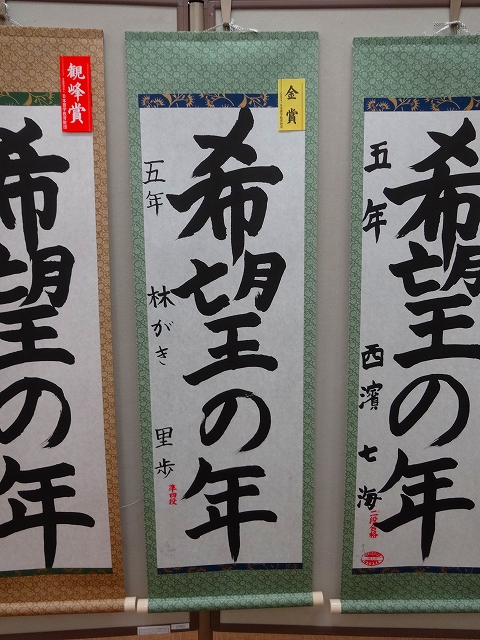 観峰賞
希望の年
金賞
希望の年
五年 林がき 里歩
準四段
希望の年
五年 西濱 七海
二段合格